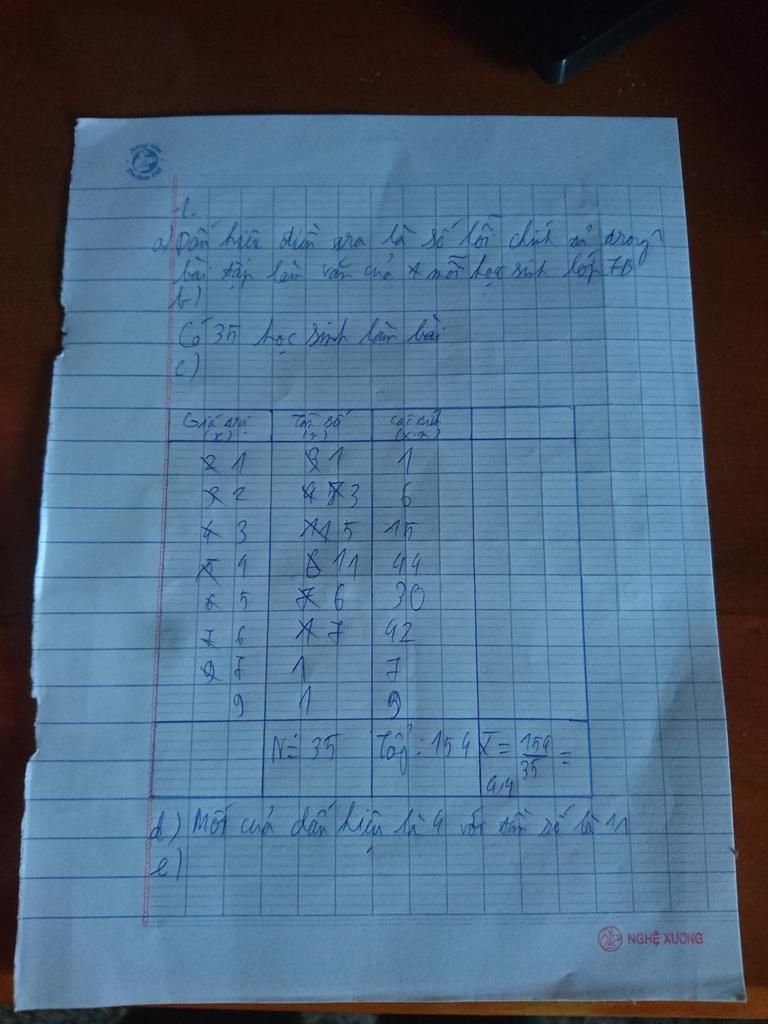 1.
a) Dấu hiệu điều tra là số lỗi chính tả trong
bài tập làm văn của mỗi học sinh lớp 7B
b)
Có 35 học sinh làm bài
c)
Giá trị (x) Tần số (n) (x.n)
1 1 1
2 3 6
3 5 15
4 11 44
5 6 30
6 7 42
7 1 7
9 1 9
N = 35 Tổng : 154 X̄ = 154/35 =
4,4
d) Mốt của dấu hiệu là 4 với tần số là 11
e)
NGHỆ XƯƠNG